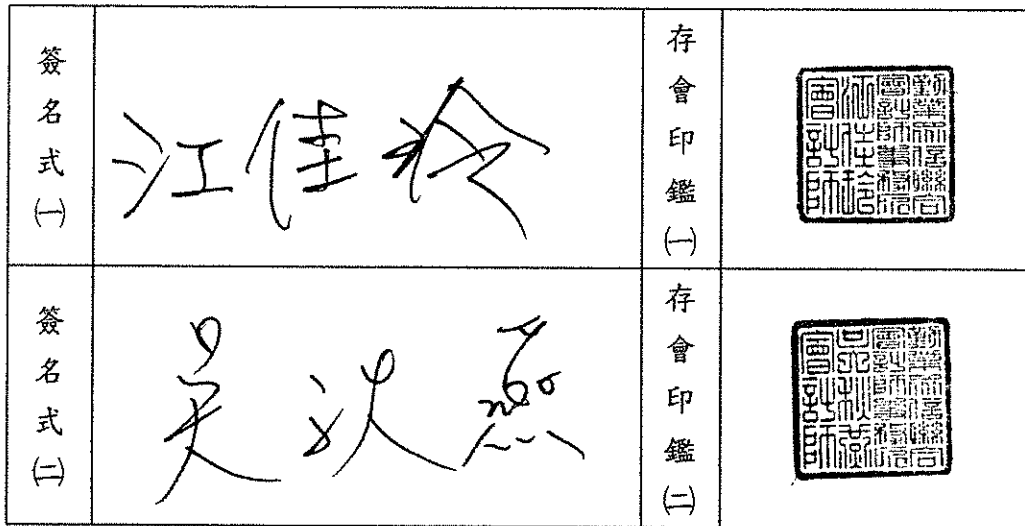 簽名式㈠
江佳玲
存會印鑑㈠
勤業眾信聯合
會計師事務所
江佳玲
會計師
簽名式㈡
吳秋燕
存會印鑑㈡
勤業眾信聯合
會計師事務所
吳秋燕
會計師